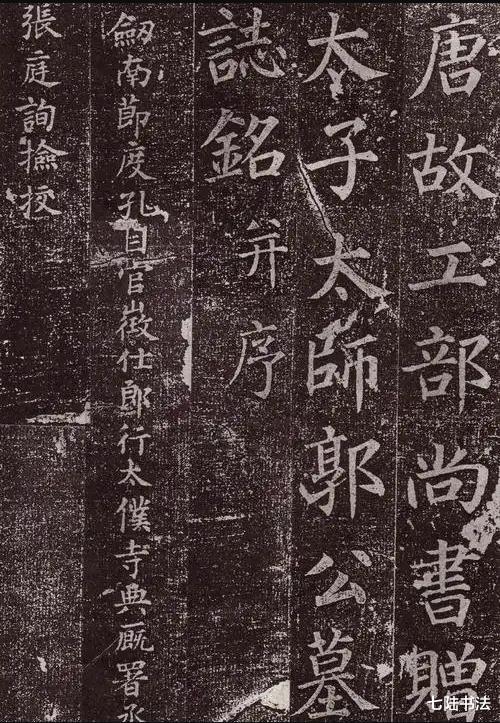 唐故工部尚書贈
太子太師郭公墓
誌銘并序
劒南節度孔目官徵仕郎行太僕寺典廐署丞
張庭詢撿挍
七陆书法